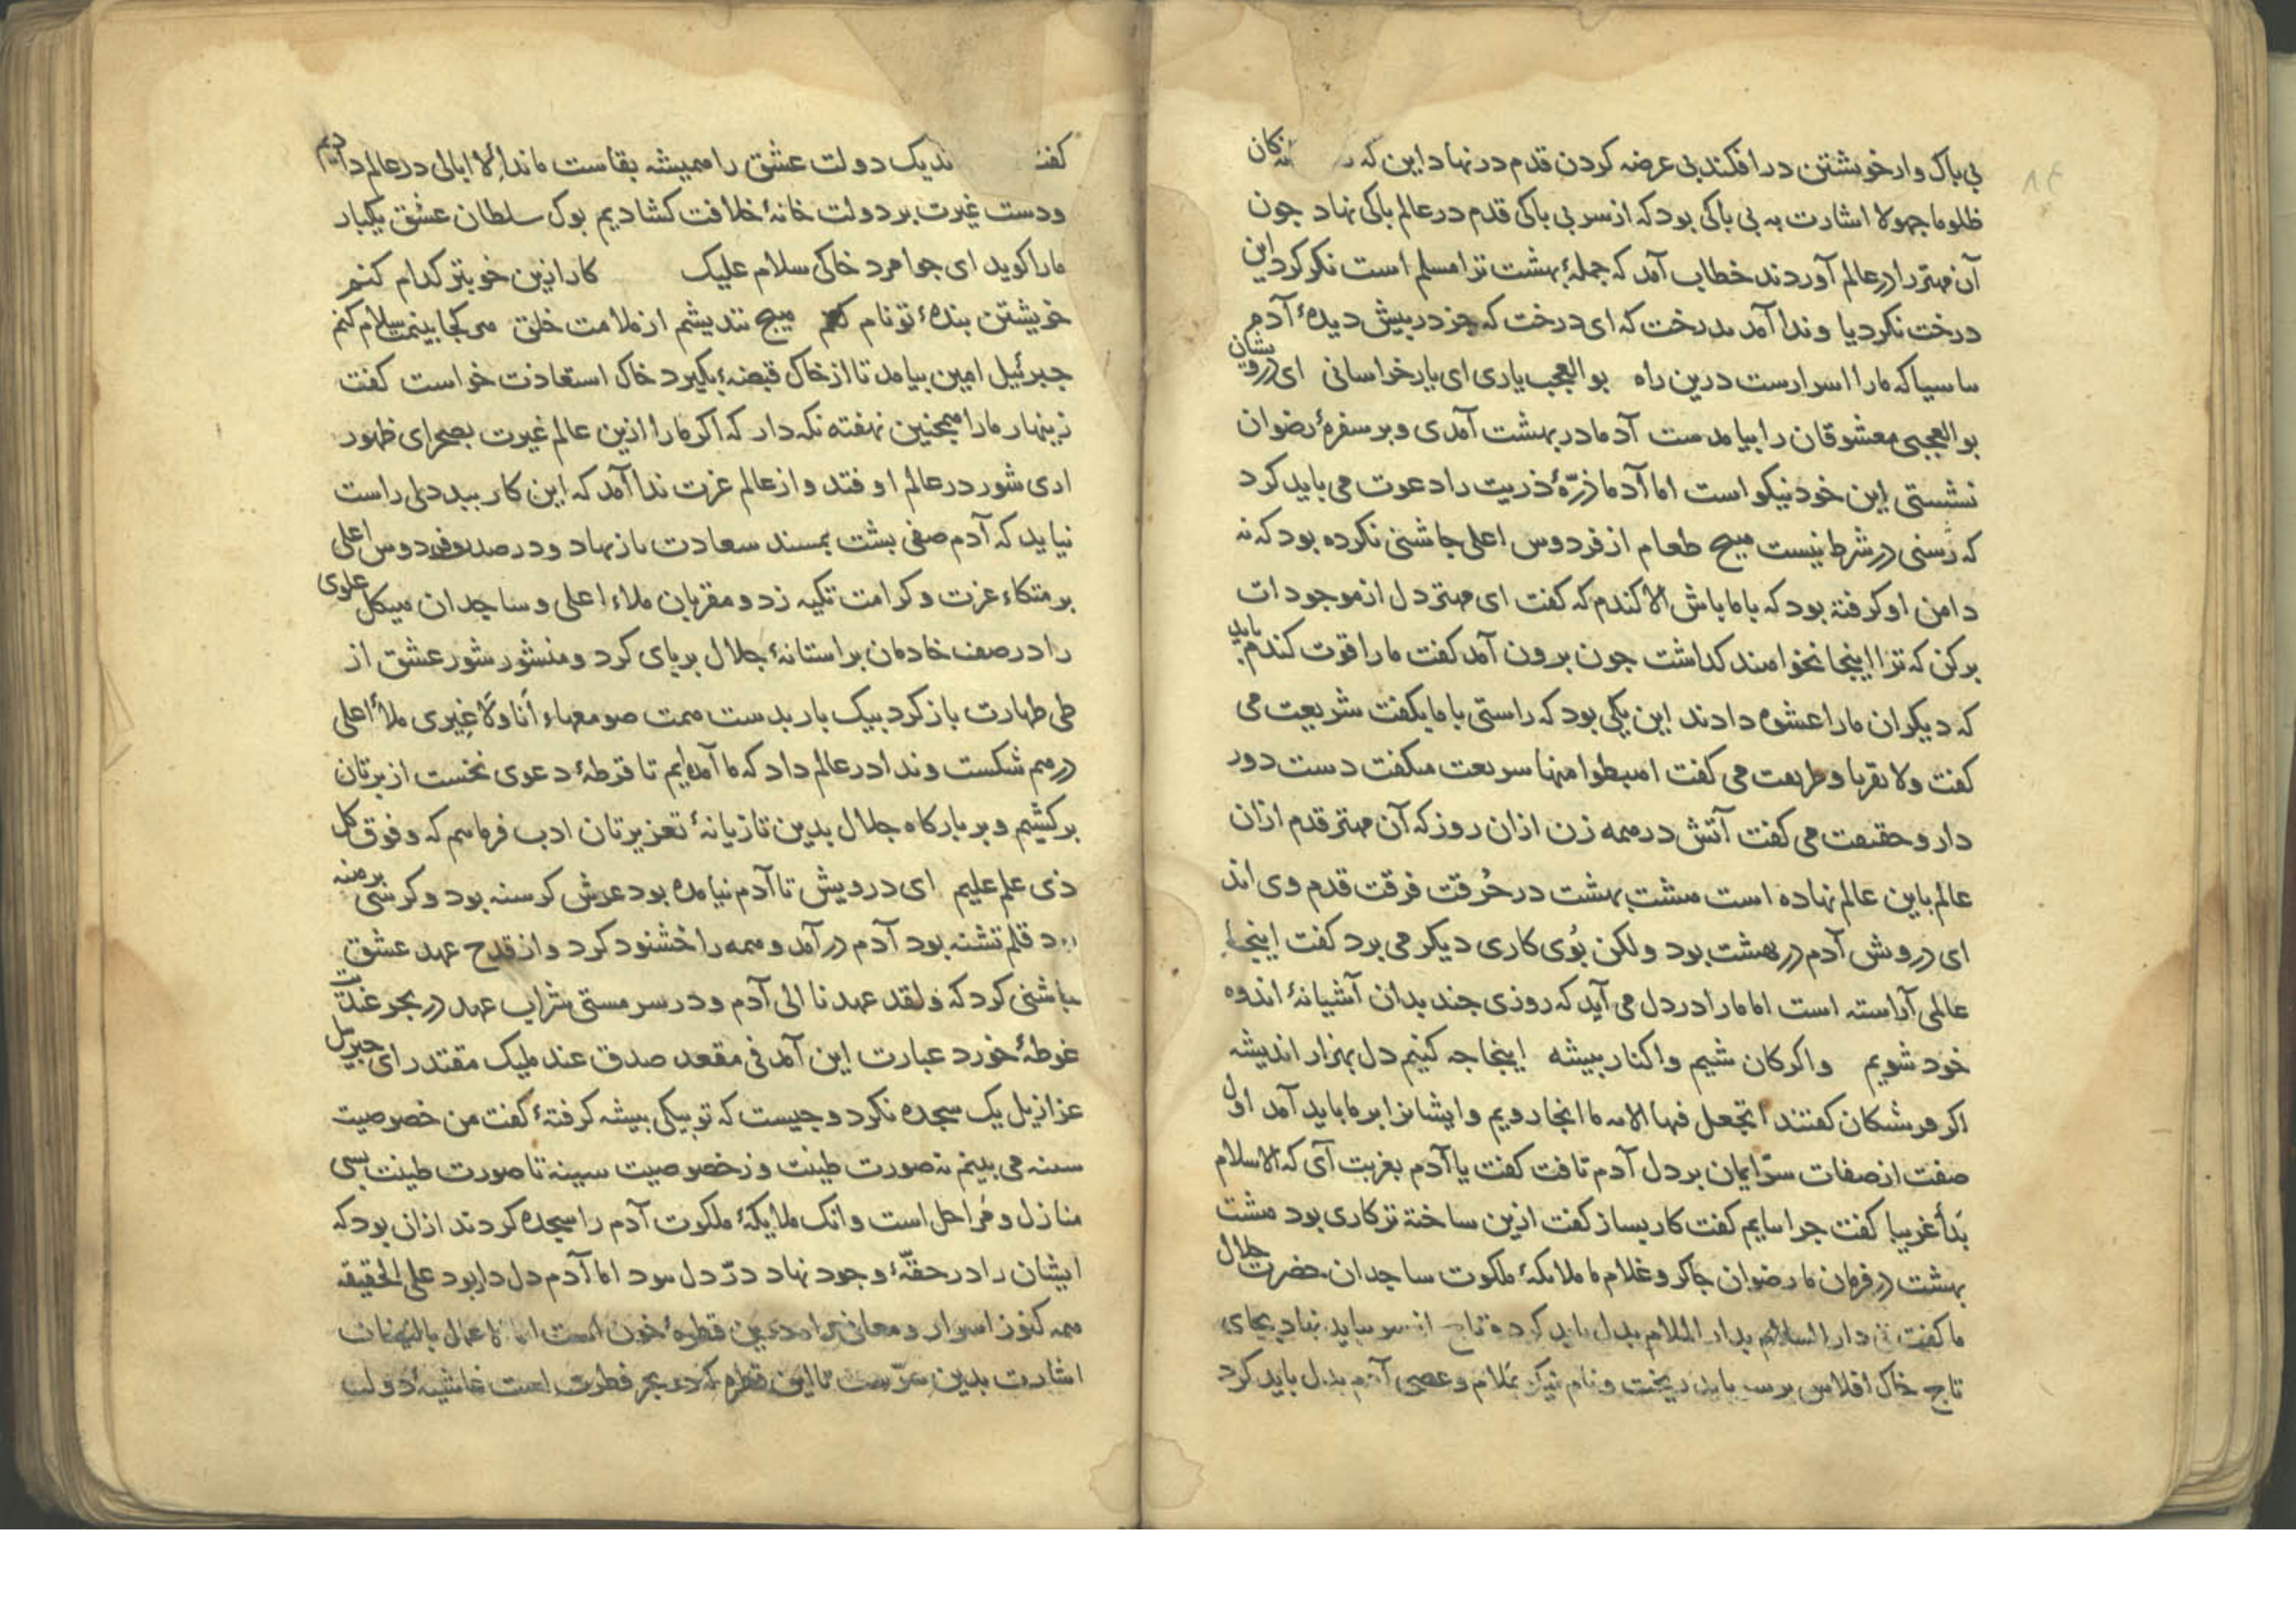 بی باک وار خویشتن در افکند بی عرضه کردن قدم در نهاد این که
ظلوما جهولا اشارت به بی باکی بود که از سر بی باکی قدم در عالم باکی نهاد جون
آن مهتر را در عالم آوردند خطاب آمد که جملهٔ بهشت ترا مسلم است نکر کرد این
درخت نکردیا و ندا آمد بدرخت که ای درخت که جز در پیش دیدهٔ آدم
ما سیاکه مارا اسرارست درین راه بو العجب یاری ای یار خراسانی ای درویشان
بو العجبی معشوقان را بیامدست آدما در بهشت آمدی و بر سفرهٔ رضوان
نشستی این خود نیکو است اما آدما ذرّهٔ ذریت را دعوت می باید کرد
که در شرط نیست هیج طعام از فردوس اعلی جاشنی نکرده بود که نه
دامن او کرفته بود که با ما باش الا کندم که کفت ای مهتر دل از موجودات
برکن که ترا اینجا نخواهند کذاشت جون برون آمد کفت مارا قوت کندم باید
که دیکران مارا عشوه دادند این یکی بود که راستی با ما بکفت شریعت می
کفت ولا تقربا و طریعت می کفت اهبطوا منها سریعت میکفت دست دور
دار و حقیقت می کفت آتش در همه زن ازان روز که آن مهتر قدم ازان
عالم باین عالم نهاده است هشت بهشت در حُرقت فرقت قدم وی اند
ای درویش آدم در بهشت بود ولکن بُوی کاری دیکر می برد کفت اینجا
عالمی آراسته است اما مارا در دل می آید که روزی جند بدان آشیانهٔ اندوه
خود شویم واکرکان شیم واکنار بیشه اینجا جه کنیم دل بهزار اندیشه
اکر فریشتکان کفتند اتجعل فیها الایه ما انجا رویم و ایشانرا بر ما باید آمد اول
صفت از صفات سرّ ایمان بر دل آدم تافت کفت یا آدم بغربت آی که الاسلام
بَدأ غریبا کفت جرا بیایم کفت کار بساز کفت ازین ساخته تر کاری بود هشت
بهشت در فرمان ما رضوان جاکر و غلام ما ملایکهٔ ملکوت ساجدان حضرت جلال
ما کفت دار السلام بدار الملام بدل باید کرد و تاج از سر بباید نهاد بجای
تاج خاک افلاس بر سر باید ریخت و نام نیکو بملام و عصی آدم بدل باید کرد
کفت دولت عشق را همیشه بقاست ما ندا لا ابالی در عالم دادیم
ودست غیرت بر دولت خانهٔ خلافت کشادیم بوک سلطان عشق یکبار
مارا کوید ای جوامرد خاکی سلام علیک کار ازین خوبتر کدام کنم
خویشتن بندهٔ تو نام کنم هیج نندیشم از ملامت خلق هر کجا بینمت سلام کنم
جبرئیل امین بیامد تا از خاک قبضهٔ بکیرد خاک استعاذت خواست کفت
زینهار مارا همجنین نهفته نکه دار که اکر مارا ازین عالم غیرت بصحرای ظهور
اری شور در عالم اوفتد و از عالم عزت ندا آمد که این کار ببد دلی راست
نیاید که آدم صفی بشت بمسند سعادت باز نهاد و در صدر فردوس اعلی
بر متکاء عزت و کرامت تکیه زد و مقربان ملاء اعلی و ساجدان هیکل علوی
را در صف خادمان بر استانهٔ جلال بر پای کرد و منشور شور عشق از
طی طهارت باز کرد بیک بار بدست همت صومعهاء اَنا ولا غیری ملأ اعلی
درهم شکست و ندا در عالم داد که ما آمدیم تا قرطهٔ دعوی نخست از برتان
برکشیم و بر بارکاه جلال بدین تازیانهٔ تعزیرتان ادب فرماییم که و فوق کل
ذی علم علیم ای درویش تا آدم نیامده بود عرش کرسنه بود و کرسی برهنه
بود قلم تشنه بود آدم در آمد و همه را خشنود کرد و از قدح عهد عشق
جاشنی کرد که و لقد عهدنا الی آدم و در سر مستی شراب عهد در بحر عندیت
غوطهٔ خورد عبارت این آمد فی مقعد صدق عند ملیک مقتدر ای جبرئل
عزازیل یک سجده نکرد و جیست که تو بیکی بیشه کرفتهٔ کفت من خصوصیت
سینه می بینم نه صورت طینت و ز خصوصیت سینه تا صورت طینت بسی
منازل و مَراحل است و انک ملایکهٔ ملکوت آدم را سجده کردند ازان بود که
ایشان را در حقّهٔ وجود نهاد درّ دل نبود اما آدم دل دار بود علی الحقیقه
همه کنوز اسرار و معانی را درین قطرهٔ خون است انما الاعمال بالنیات
اشارت بدین سرّست تا این قطره که در بحر فطرت است غاشیهٔ دولت